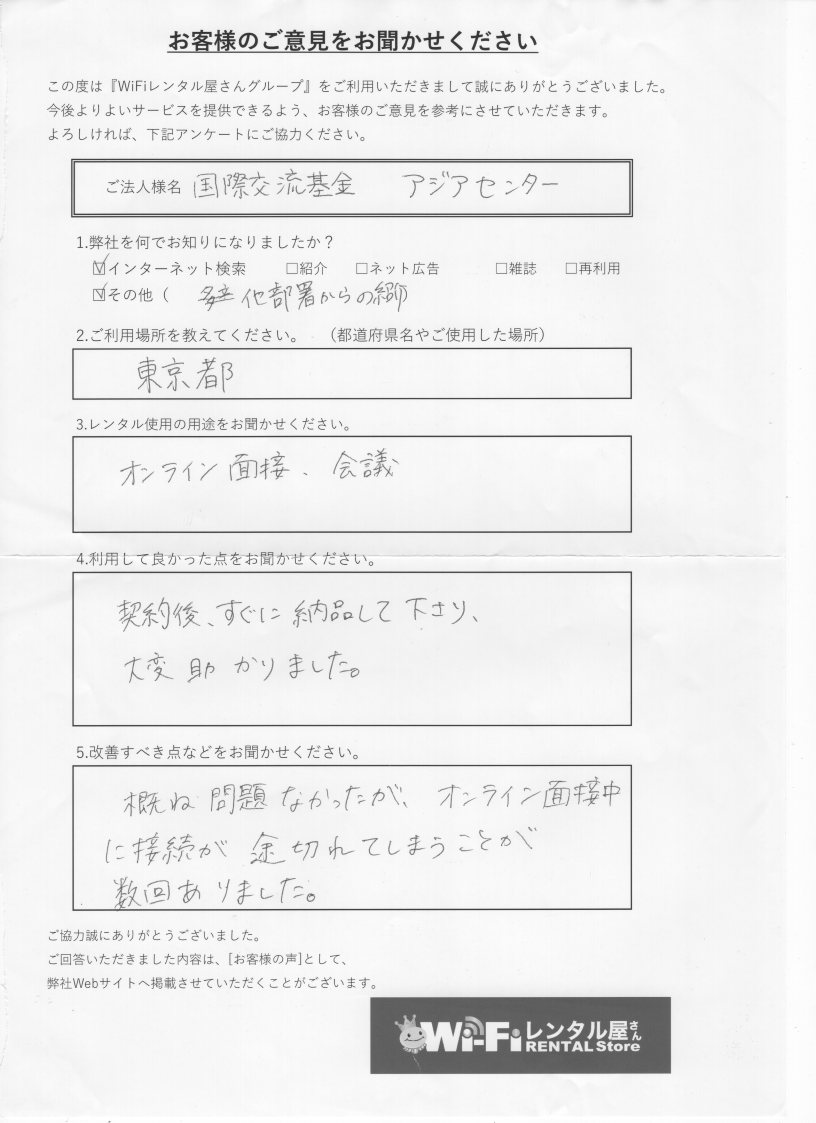 お客様のご意見をお聞かせください
この度は『WiFiレンタル屋さんグループ』をご利用いただきまして誠にありがとうございました。
今後よりよいサービスを提供できるよう、お客様のご意見を参考にさせていただきます。
よろしければ、下記アンケートにご協力ください。
ご法人様名 国際交流基金 アジアセンター
1.弊社を何でお知りになりましたか？
☑インターネット検索 □紹介 □ネット広告 □雑誌 □再利用
☑その他（ 他部署からの紹介）
2.ご利用場所を教えてください。 （都道府県名やご使用した場所）
東京都
3.レンタル使用の用途をお聞かせください。
オンライン面接、会議
4.利用して良かった点をお聞かせください。
契約後、すぐに納品して下さり、
大変助かりました。
5.改善すべき点などをお聞かせください。
概ね問題なかったが、オンライン面接中
に接続が途切れてしまうことが
数回ありました。
ご協力誠にありがとうございました。
ご回答いただきました内容は、[お客様の声]として、
弊社Webサイトへ掲載させていただくことがございます。
Wi-Fiレンタル屋さん
RENTAL Store